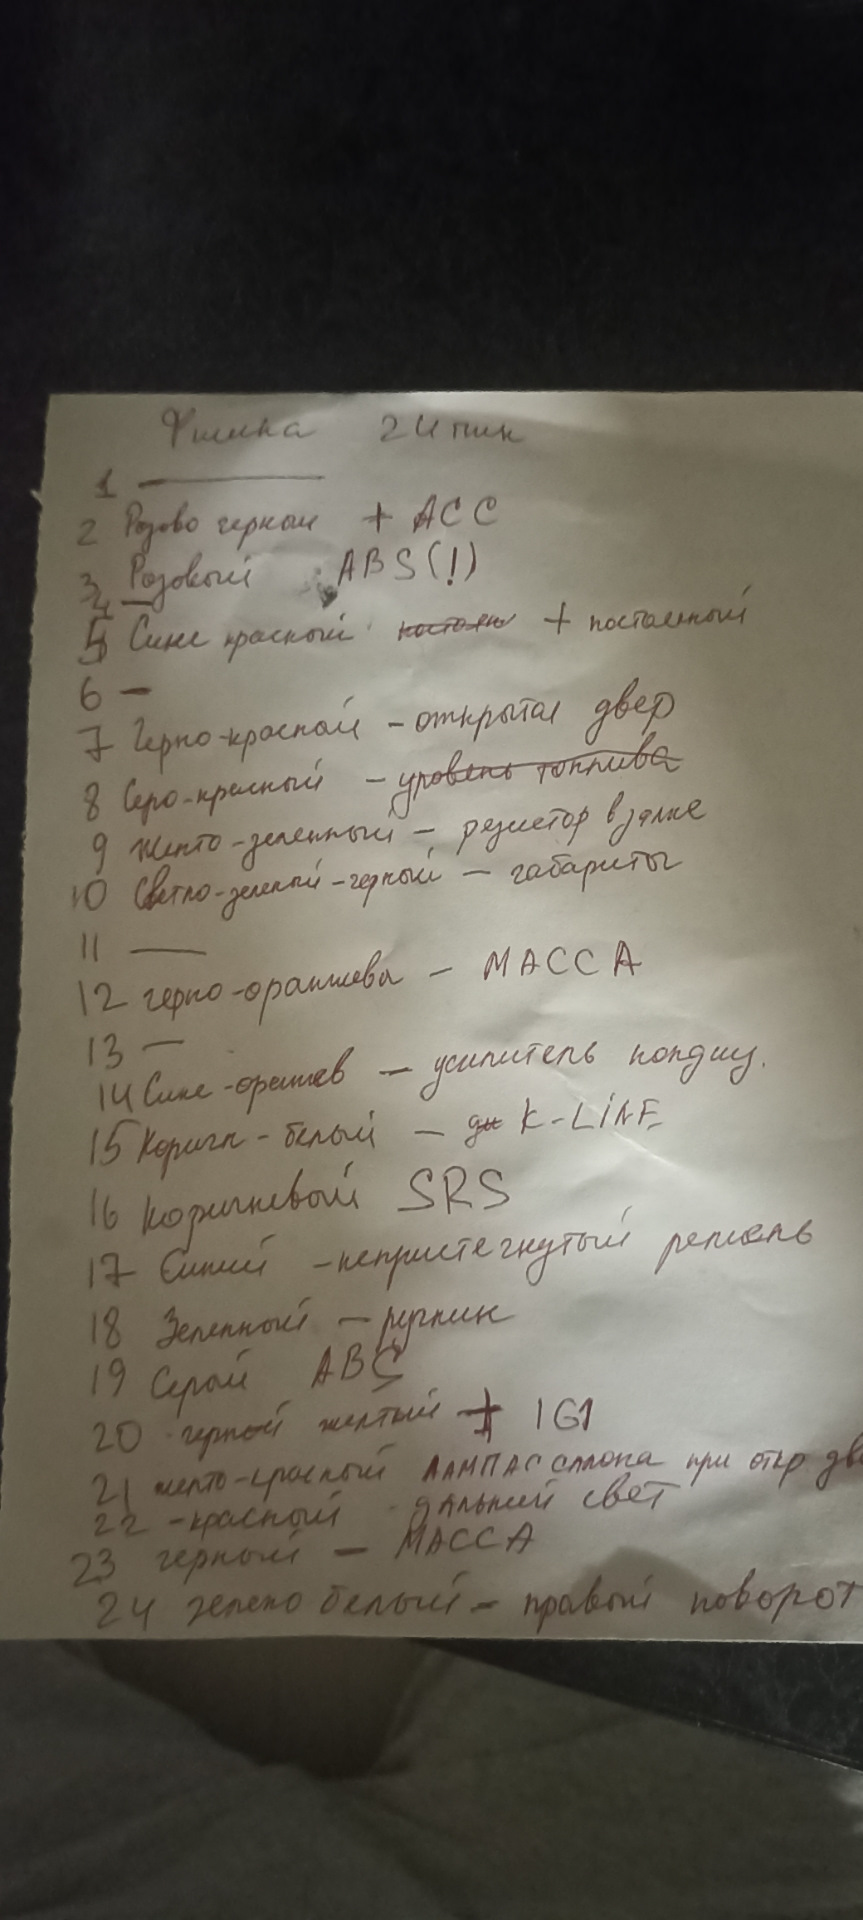 Фишка 24 пин
1 —
2 Розово черный + ACC
3 Розовый ABS (!)
4 —
5 Сине красный постоян + постаянный
6 —
7 Черно-красный - открытая двер
8 Серо-красный - уровень топлива
9 Желто-зеленный - резистор в залке
10 Светло-зеленый-черный - габариты
11 —
12 черно-оранжева - МАССА
13 —
14 Сине-оранжев - усилитель кондиц.
15 Коричн-белый - K-LINE
16 Коричневый SRS
17 Синий - непристегнутый ремень
18 Зеленный - ручник
19 Серый ABS
20 черный желтый + IG1
21 желто-красный ЛАМПАС салона при откр две
22 -красный дальний свет
23 черный - МАССА
24 зелено белый - правый поворот